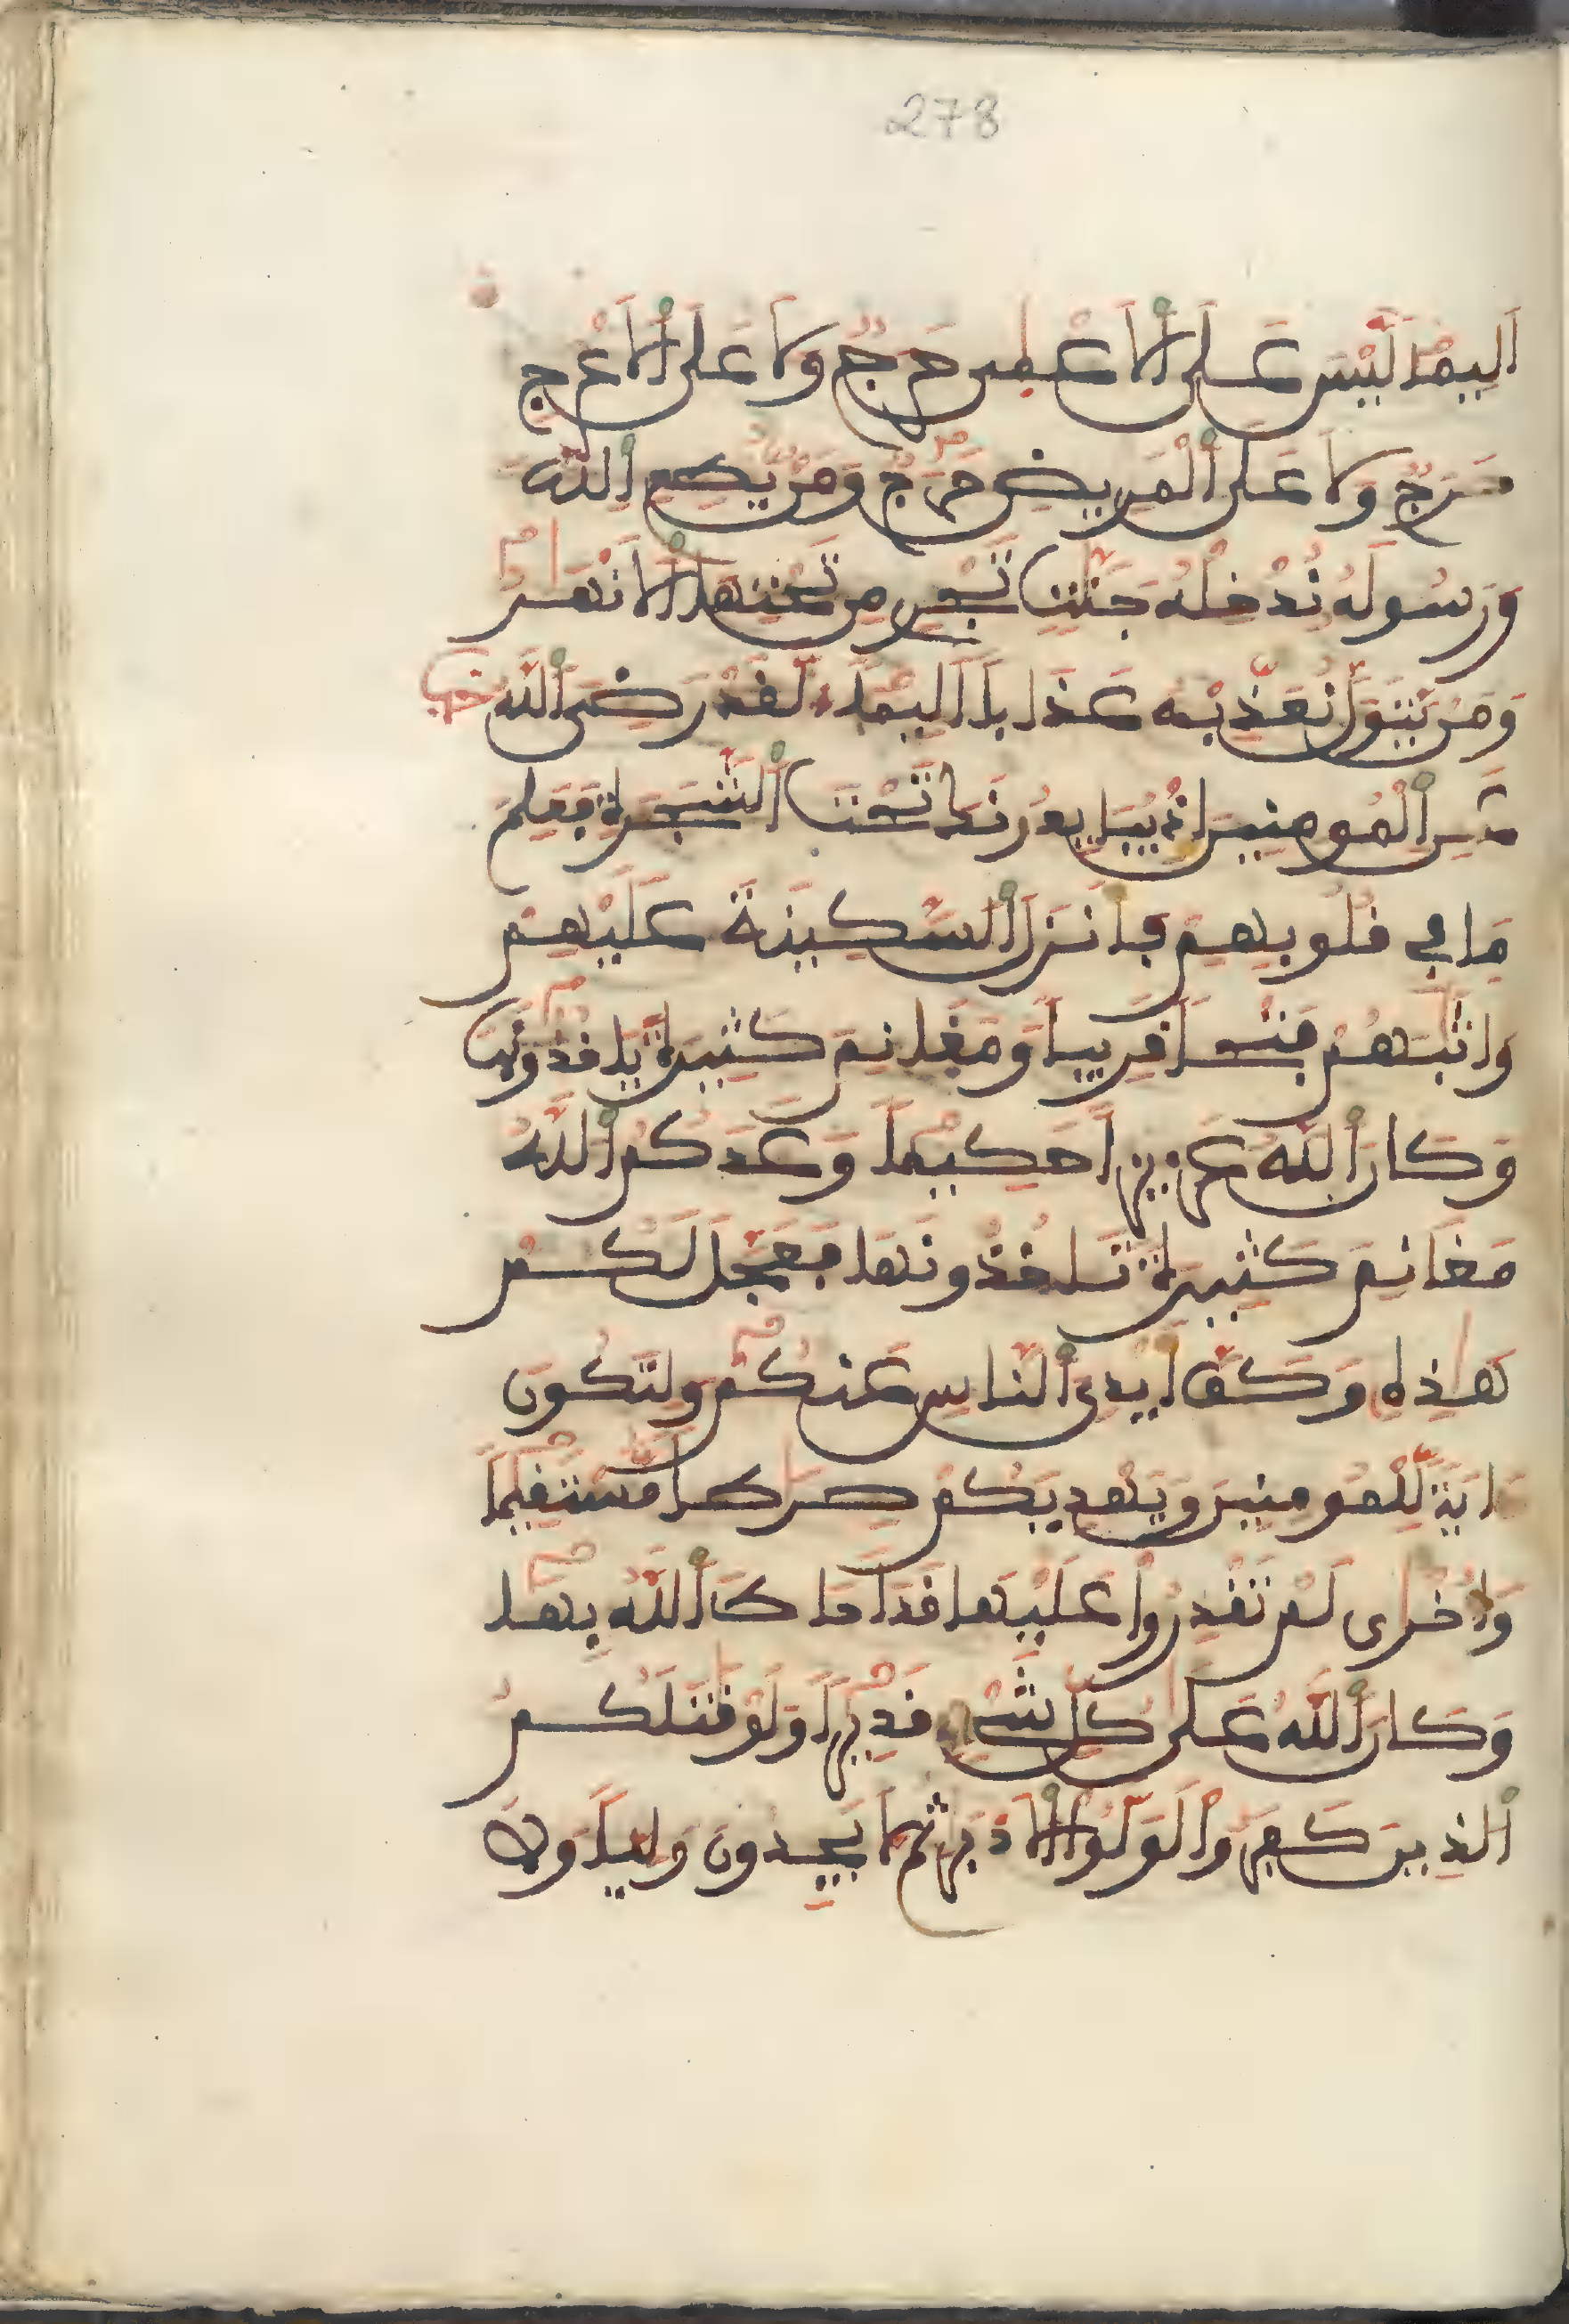 278
اَلِيمًا لَّيْسَ عَلَى اَ۬لَاعْمِىٰ حَرَجٌ وَلَا عَلَى اَ۬لَاعْرَجِ
حَرَجٌ وَلَا عَلَى اَ۬لْمَرِيضِ حَرَجٌ وَمَنْ يُّطِعِ اِ۬للَّهَ
وَرَسُولَهُ نُدْخِلْهُ جَنَّٰتٍ تَجْرِے مِن تَحْتِهَا اَ۬لَانْهَٰرُ
وَمَنْ يَّتَوَلَّ نُعَذِّبْهُ عَذَاباً اَلِيماً لَّقَدْ رَضِيَ اَ۬للَّهُ حزب
عَنِ اِ۬لْمُومِنِينَ إِذْ يُبَايِعُونَكَ تَحْتَ اَ۬لشَّجَرَةِ فَعَلِمَ
مَا فِے قُلُوبِهِمْ فَأَنزَلَ اَ۬لسَّكِينَةَ عَلَيْهِمْ
وَأَثَٰبَهُمْ فَتْحاً قَرِيباً وَمَغَانِمَ كَثِيرَةً يَاخُذُونَهَا
وَكَانَ اَ۬للَّهُ عَزِيزاً حَكِيماً وَعَدَكُمُ اُ۬للَّهُ
مَغَانِمَ كَثِيرَةً تَاخُذُونَهَا فَعَجَّلَ لَكُمْ
هَٰذِهِ وَكَفَّ أَيْدِيَ اَ۬لنَّاسِ عَنكُمْ وَلِتَكُونَ
ءَايَةً لِّلْمُومِنِينَ وَيَهْدِيَكُمْ صِرَٰطاً مُّسْتَقِيماً
وَأُخْرَىٰ لَمْ تَقْدِرُواْ عَلَيْهَا قَدَ اَحَاطَ اَ۬للَّهُ بِهَا
وَكَانَ اَ۬للَّهُ عَلَىٰ كُلِّ شَيْءٍ قَدِيراً وَلَوْ قَٰتَلَكُمُ
اُ۬لذِينَ كَفَرُواْ لَوَلَّوُاْ اُ۬لَادْبَٰرَ ثُمَّ لَا يَجِدُونَ وَلِيّاً وَلَا